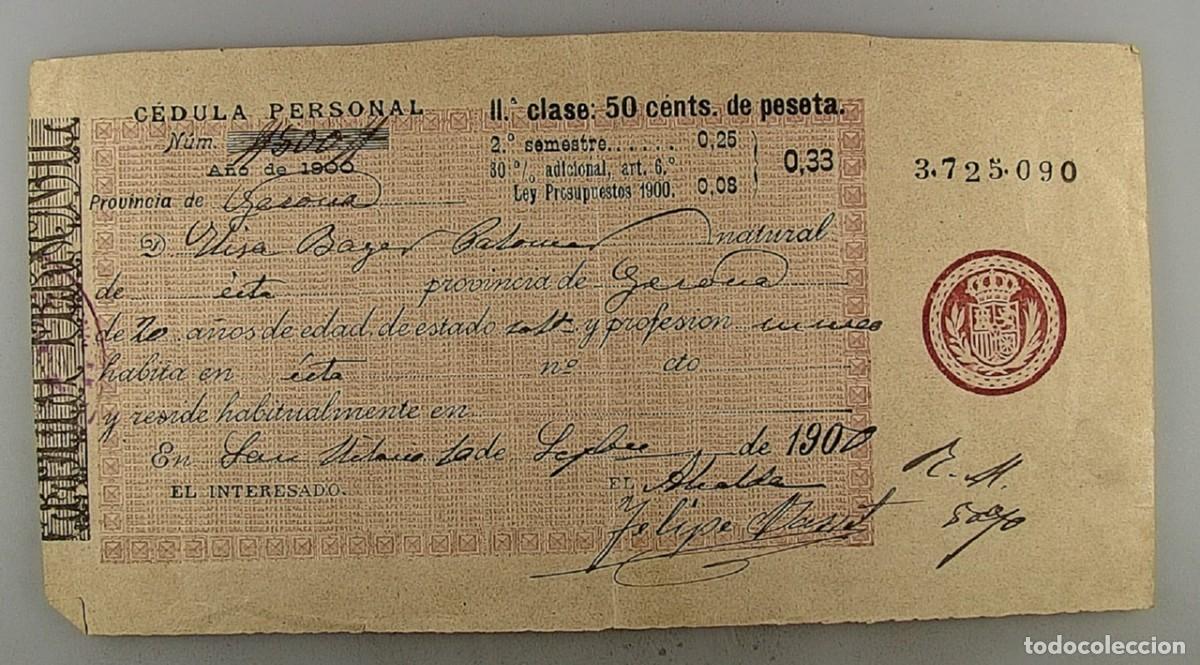 CÉDULA PERSONAL
Núm.
Año de 1900
Provincia de Gerona
11.ª clase: 50 cénts. de peseta.
2.º semestre...... 0,25
30 % adicional, art. 6.º
Ley Presupuestos 1900. 0,08
0,33
3.725.090
D Elisa Bager natural
de ésta provincia de Gerona
de 20 años de edad, de estado solt.ª y profesion
habita en ésta nº cto
y reside habitualmente en
En San de de 1900
EL INTERESADO.
EL Alcalde
Felipe Masset
R. M.
todocoleccion